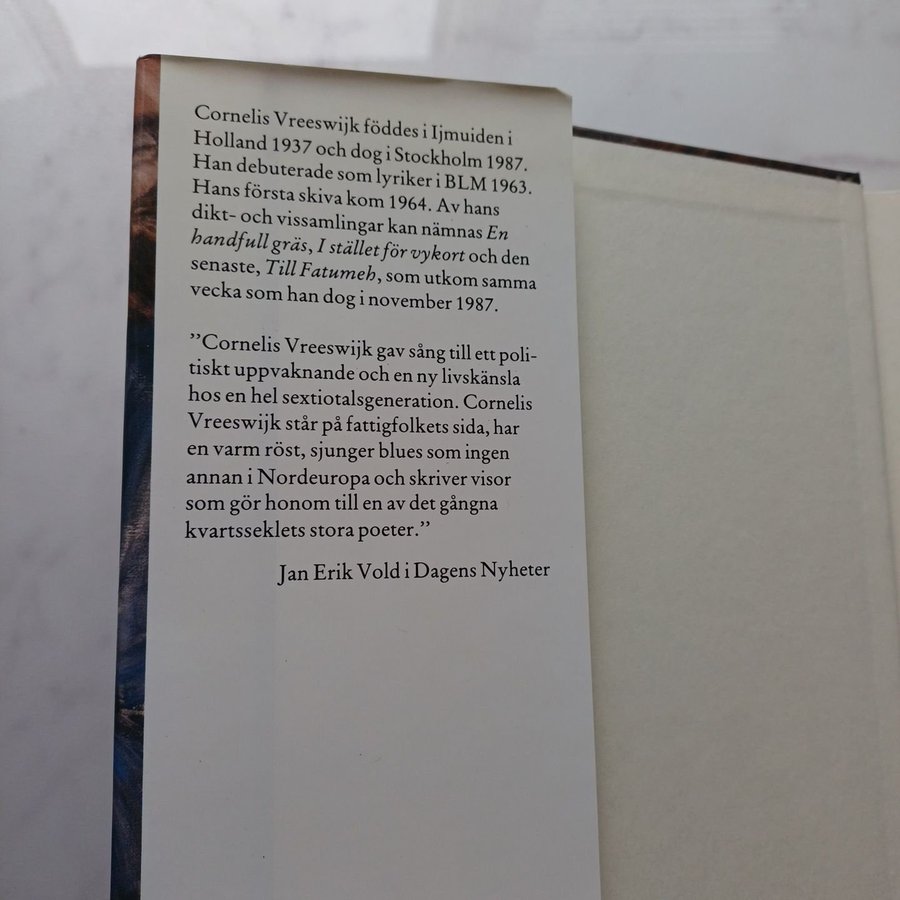 Cornelis Vreeswijk föddes i Ijmuiden i
Holland 1937 och dog i Stockholm 1987.
Han debuterade som lyriker i BLM 1963.
Hans första skiva kom 1964. Av hans
dikt- och vissamlingar kan nämnas En
handfull gräs, I stället för vykort och den
senaste, Till Fatumeh, som utkom samma
vecka som han dog i november 1987.
”Cornelis Vreeswijk gav sång till ett poli-
tiskt uppvaknande och en ny livskänsla
hos en hel sextiotalsgeneration. Cornelis
Vreeswijk står på fattigfolkets sida, har
en varm röst, sjunger blues som ingen
annan i Nordeuropa och skriver visor
som gör honom till en av det gångna
kvartsseklets stora poeter.”
Jan Erik Vold i Dagens Nyheter